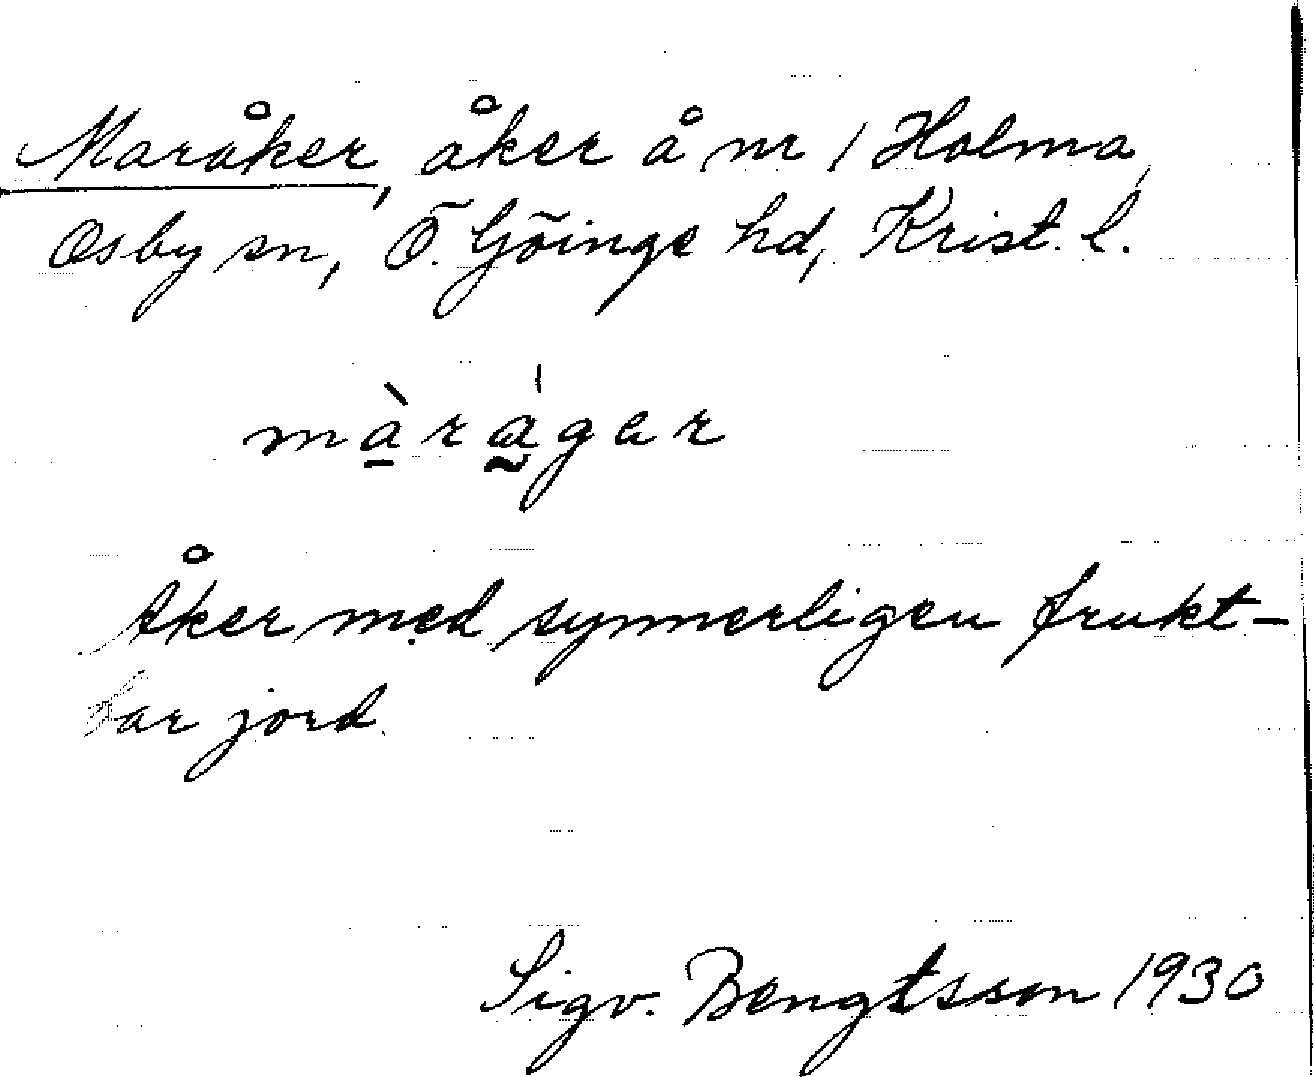 Maråker, åker å nr 1 Holma,
Osby sn, Ö. Göinge hd, Krist. l.
màrágar
Åker med synnerligen frukt-
bar jord.
Sigv. Bengtsson 1930